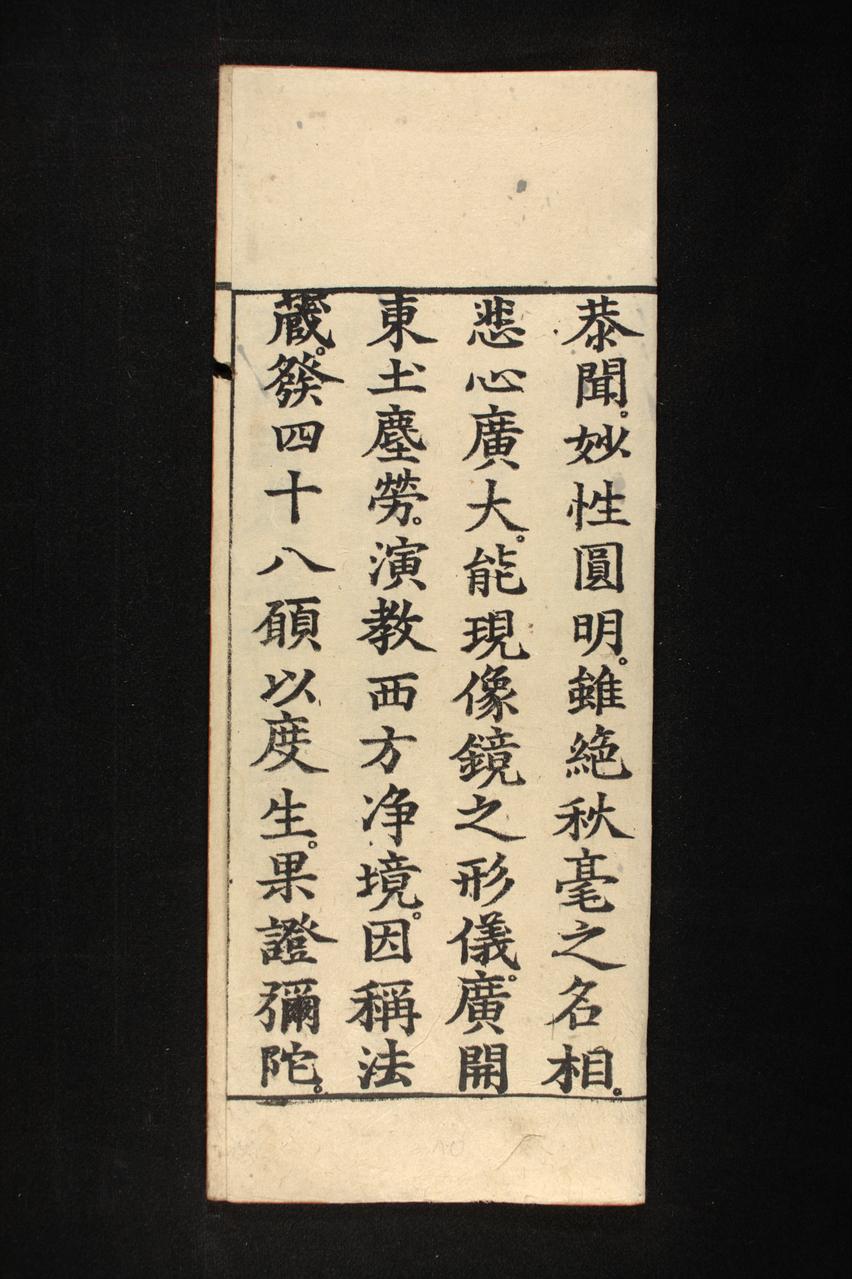 恭聞。妙性圓明。雖絶秋毫之名相。
悲心廣大。能現像鏡之形儀。廣開
東土塵勞。演教西方净境。因稱法
藏。發四十八願以度生。果證彌陀。